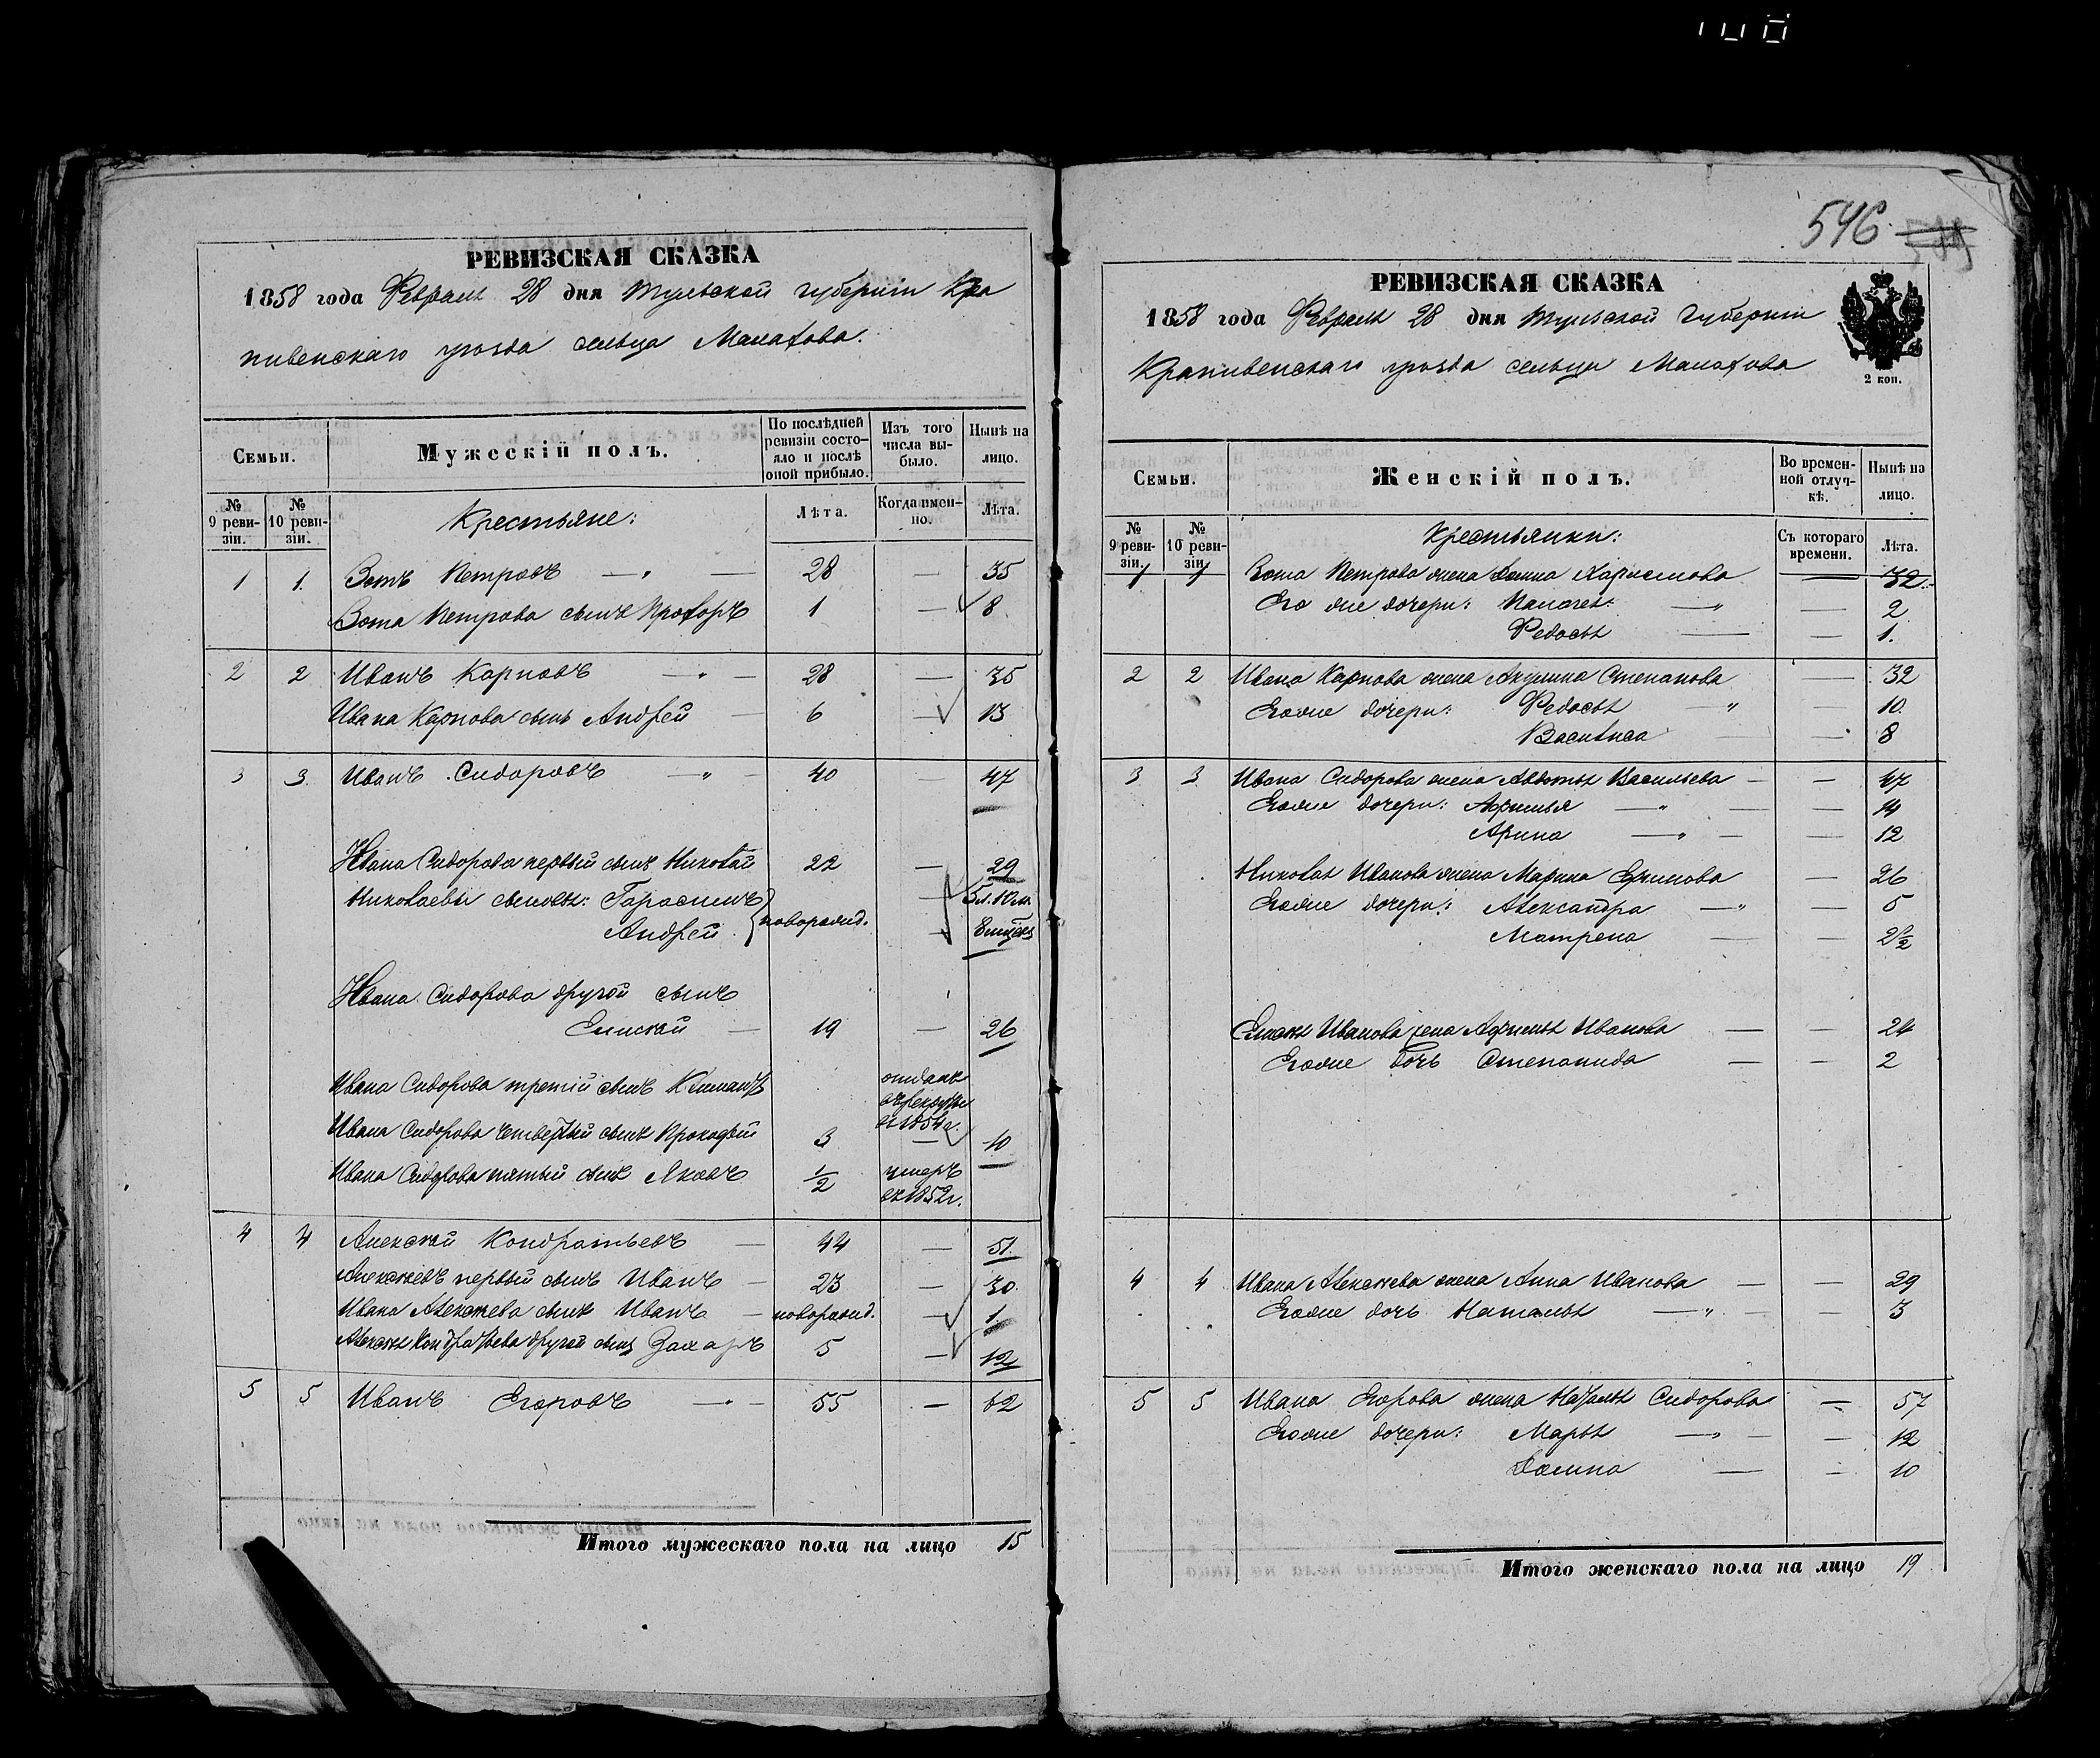 546
РЕВИЗСКАЯ СКАЗКА
1858 года Февраля 28 дня Тульской губернiи Кра
пивенскаго уѣзда сельца Малахова.
Семьи.
Мужескій полъ.
По послѣдней ревизіи состо-
яло и послѣ оной прибыло.
Изъ того числа вы-
было.
Нынѣ на лицо.
№ 9 реви-
зіи.
№ 10 реви-
зіи.
Крестьяне:
Лѣта.
Когда имен-
но.
Лѣта.
1 1. Зотъ Петровъ — " — 28 — 35
Зота Петрова сынъ Прохоръ 1 — 8
2 2 Иванъ Карповъ — " — 28 — 35
Ивана Карпова сынъ Андрей — 6 — 13
3 3 Иванъ Сидоровъ — " — 40 — 47
Ивана Сидорова первый сынъ Николай 22 — 29
Николаевы сыновья: Гарасимъ новорожд. — 5 л.
Андрей —
Ивана Сидорова другой сынъ
Елисей — 19 — 26
Ивана Сидорова третій сынъ
отданъ
въ рекруты
въ 1854 г.
Ивана Сидорова четвертый сынъ Прокофій 3 — 10
Ивана Сидорова пятый сынъ Яковъ 1/2 умеръ
въ 1852 г.
4 4 Алексей Кондратьевъ — 44 — 51.
Алексеевъ первый сынъ Иванъ — 23 — 30.
Ивана Алексеева сынъ Иванъ — новорожд. — 1.
Алексея Кондратьева другой сынъ Захаръ 5 — 12
5 5 Иванъ Егоровъ — " — 55 — 62
Итого мужескаго пола на лицо 15
РЕВИЗСКАЯ СКАЗКА
1858 года Февраля 28 дня Тульской Губерніи
Крапивенскаго уѣзда сельца Малахова
2 коп.
Семьи.
Женскій полъ.
Во времен-
ной отлуч-
кѣ.
Нынѣ на лицо.
№ 9 реви-
зіи.
№ 10 реви-
зіи.
Крестьянки:
Съ котораго времени.
Лѣта.
1 1 Зота Петрова жена Домна — 32.
Его же дочери: — " — 2
Федосья — 1.
2 2 Ивана Карпова жена Акулина Степанова — 32
Его же дочери: Федосья — " 10.
Василиса — 8
3 3 Ивана Сидорова жена Авдотья Васильева — 47
Его же дочери: Афимья — " — 14
Арина — " — 12
Николая Иванова жена Марина Ефимова — 26
Его же дочери: Александра — " — 5
Матрена — 2 1/2
Елисея Иванова жена Афимья Иванова — 24
Его же дочь Степанида — 2
4 4 Ивана Алексеева жена Анна Иванова — 29
Его же дочь Наталья — " — 3
5 5 Ивана Егорова жена Наталья Сидорова — 57
Его же дочери: Марья — " — 12
Домна — 10
Итого женскаго пола на лицо 19